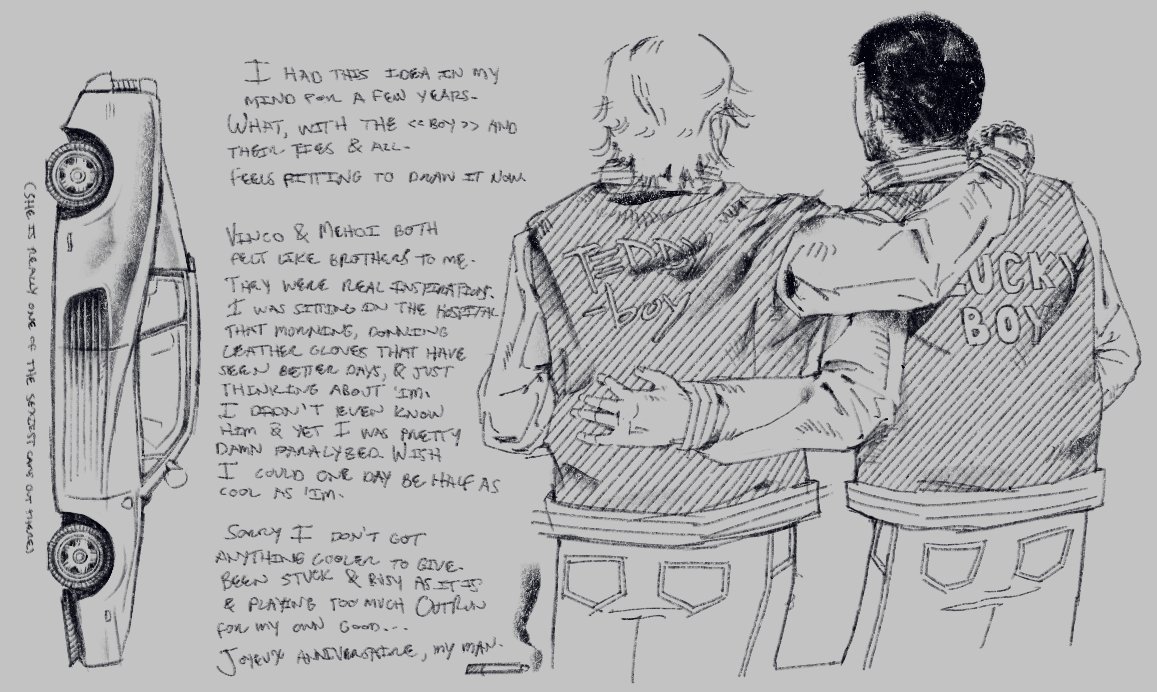 (SHE IS REALLY ONE OF THE SEXIEST CARS OUT THERE)
I HAD THIS IDEA IN MY
MIND FOR A FEW YEARS.
WHAT, WITH THE <<BOY>> AND
THEIR TIES & ALL.
FEELS FITTING TO DRAW IT NOW.
VINCO & MEHDI BOTH
FELT LIKE BROTHERS TO ME.
THEY WERE REAL INSPIRATIONS.
I WAS SITTING IN THE HOSPITAL
THAT MORNING, DONNING
LEATHER GLOVES THAT HAVE
SEEN BETTER DAYS, & JUST
THINKING ABOUT 'IM.
I DIDN'T EVEN KNOW
HIM & YET I WAS PRETTY
DAMN PARALYZED. WISH
I COULD ONE DAY BE HALF AS
COOL AS 'IM.
SORRY I DON'T GOT
ANYTHING COOLER TO GIVE.
BEEN STUCK & BUSY AS IT IS
& PLAYING TOO MUCH OUTRUN
FOR MY OWN GOOD...
JOYEUX ANNIVERSAIRE, MY MAN.
TEDDY
-boy
LUCKY
BOY